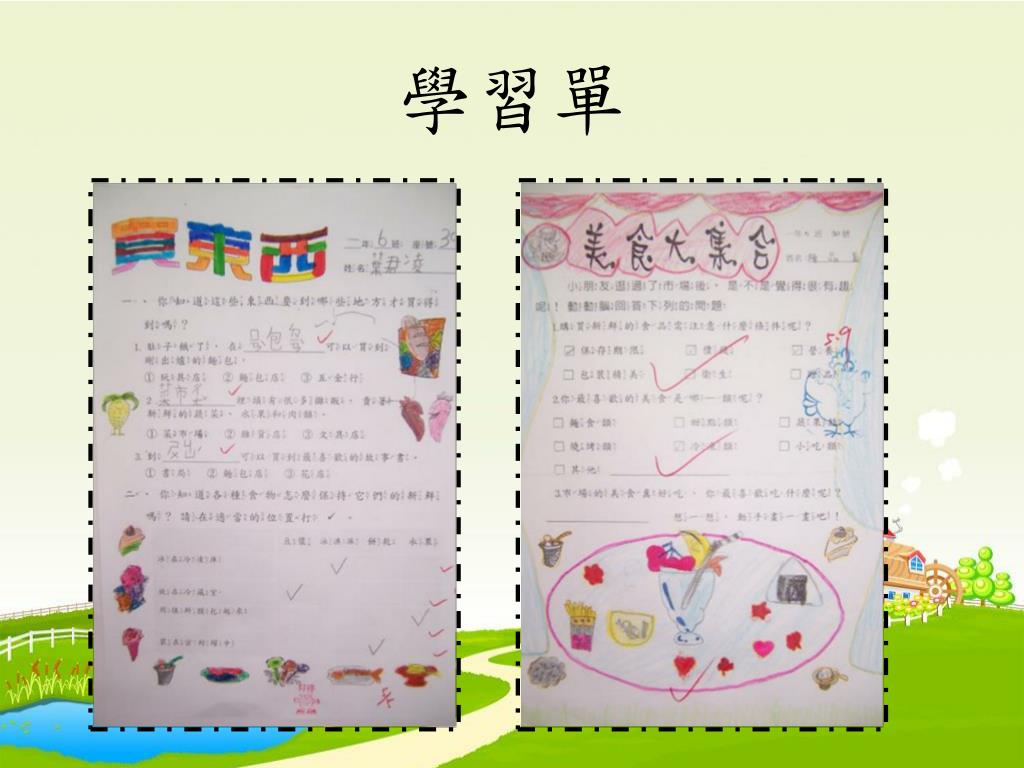 學習單
買東西
二年6班 座號
姓名
一、你知道這些東西要到哪些地方才買得
到嗎？
1. 肚子餓了，在 可以買到
剛出爐的麵包。
① 玩具店 ② 麵包店 ③ 五金行
2. 裡頭有很多攤販，賣著
新鮮的蔬菜、水果和肉類。
① 菜市場 ② 雜貨店 ③ 文具店
3. 到 可以買到最喜歡的故事書。
① 書局 ② 麵包店 ③ 花店
二、你知道各種食物怎麼保持它們的新鮮
嗎？請在適當的位置打✓。
豆漿 冰淇淋 餅乾 水果
美食大集合
小朋友逛過了市場後，是不是覺得很有趣
呢！動動腦回答下列的問題
1.購買新鮮的食品需注意什麼條件呢？
保存期限 營養
包裝精美 衛生 贈品
2.你最喜歡的美食是哪一類呢？
麵食類 甜點類 蔬果類
燒烤類 冷凍類 小吃類
其他
3.市場的美食真好吃，你最喜歡吃什麼呢？
想一想，動手畫一畫吧！